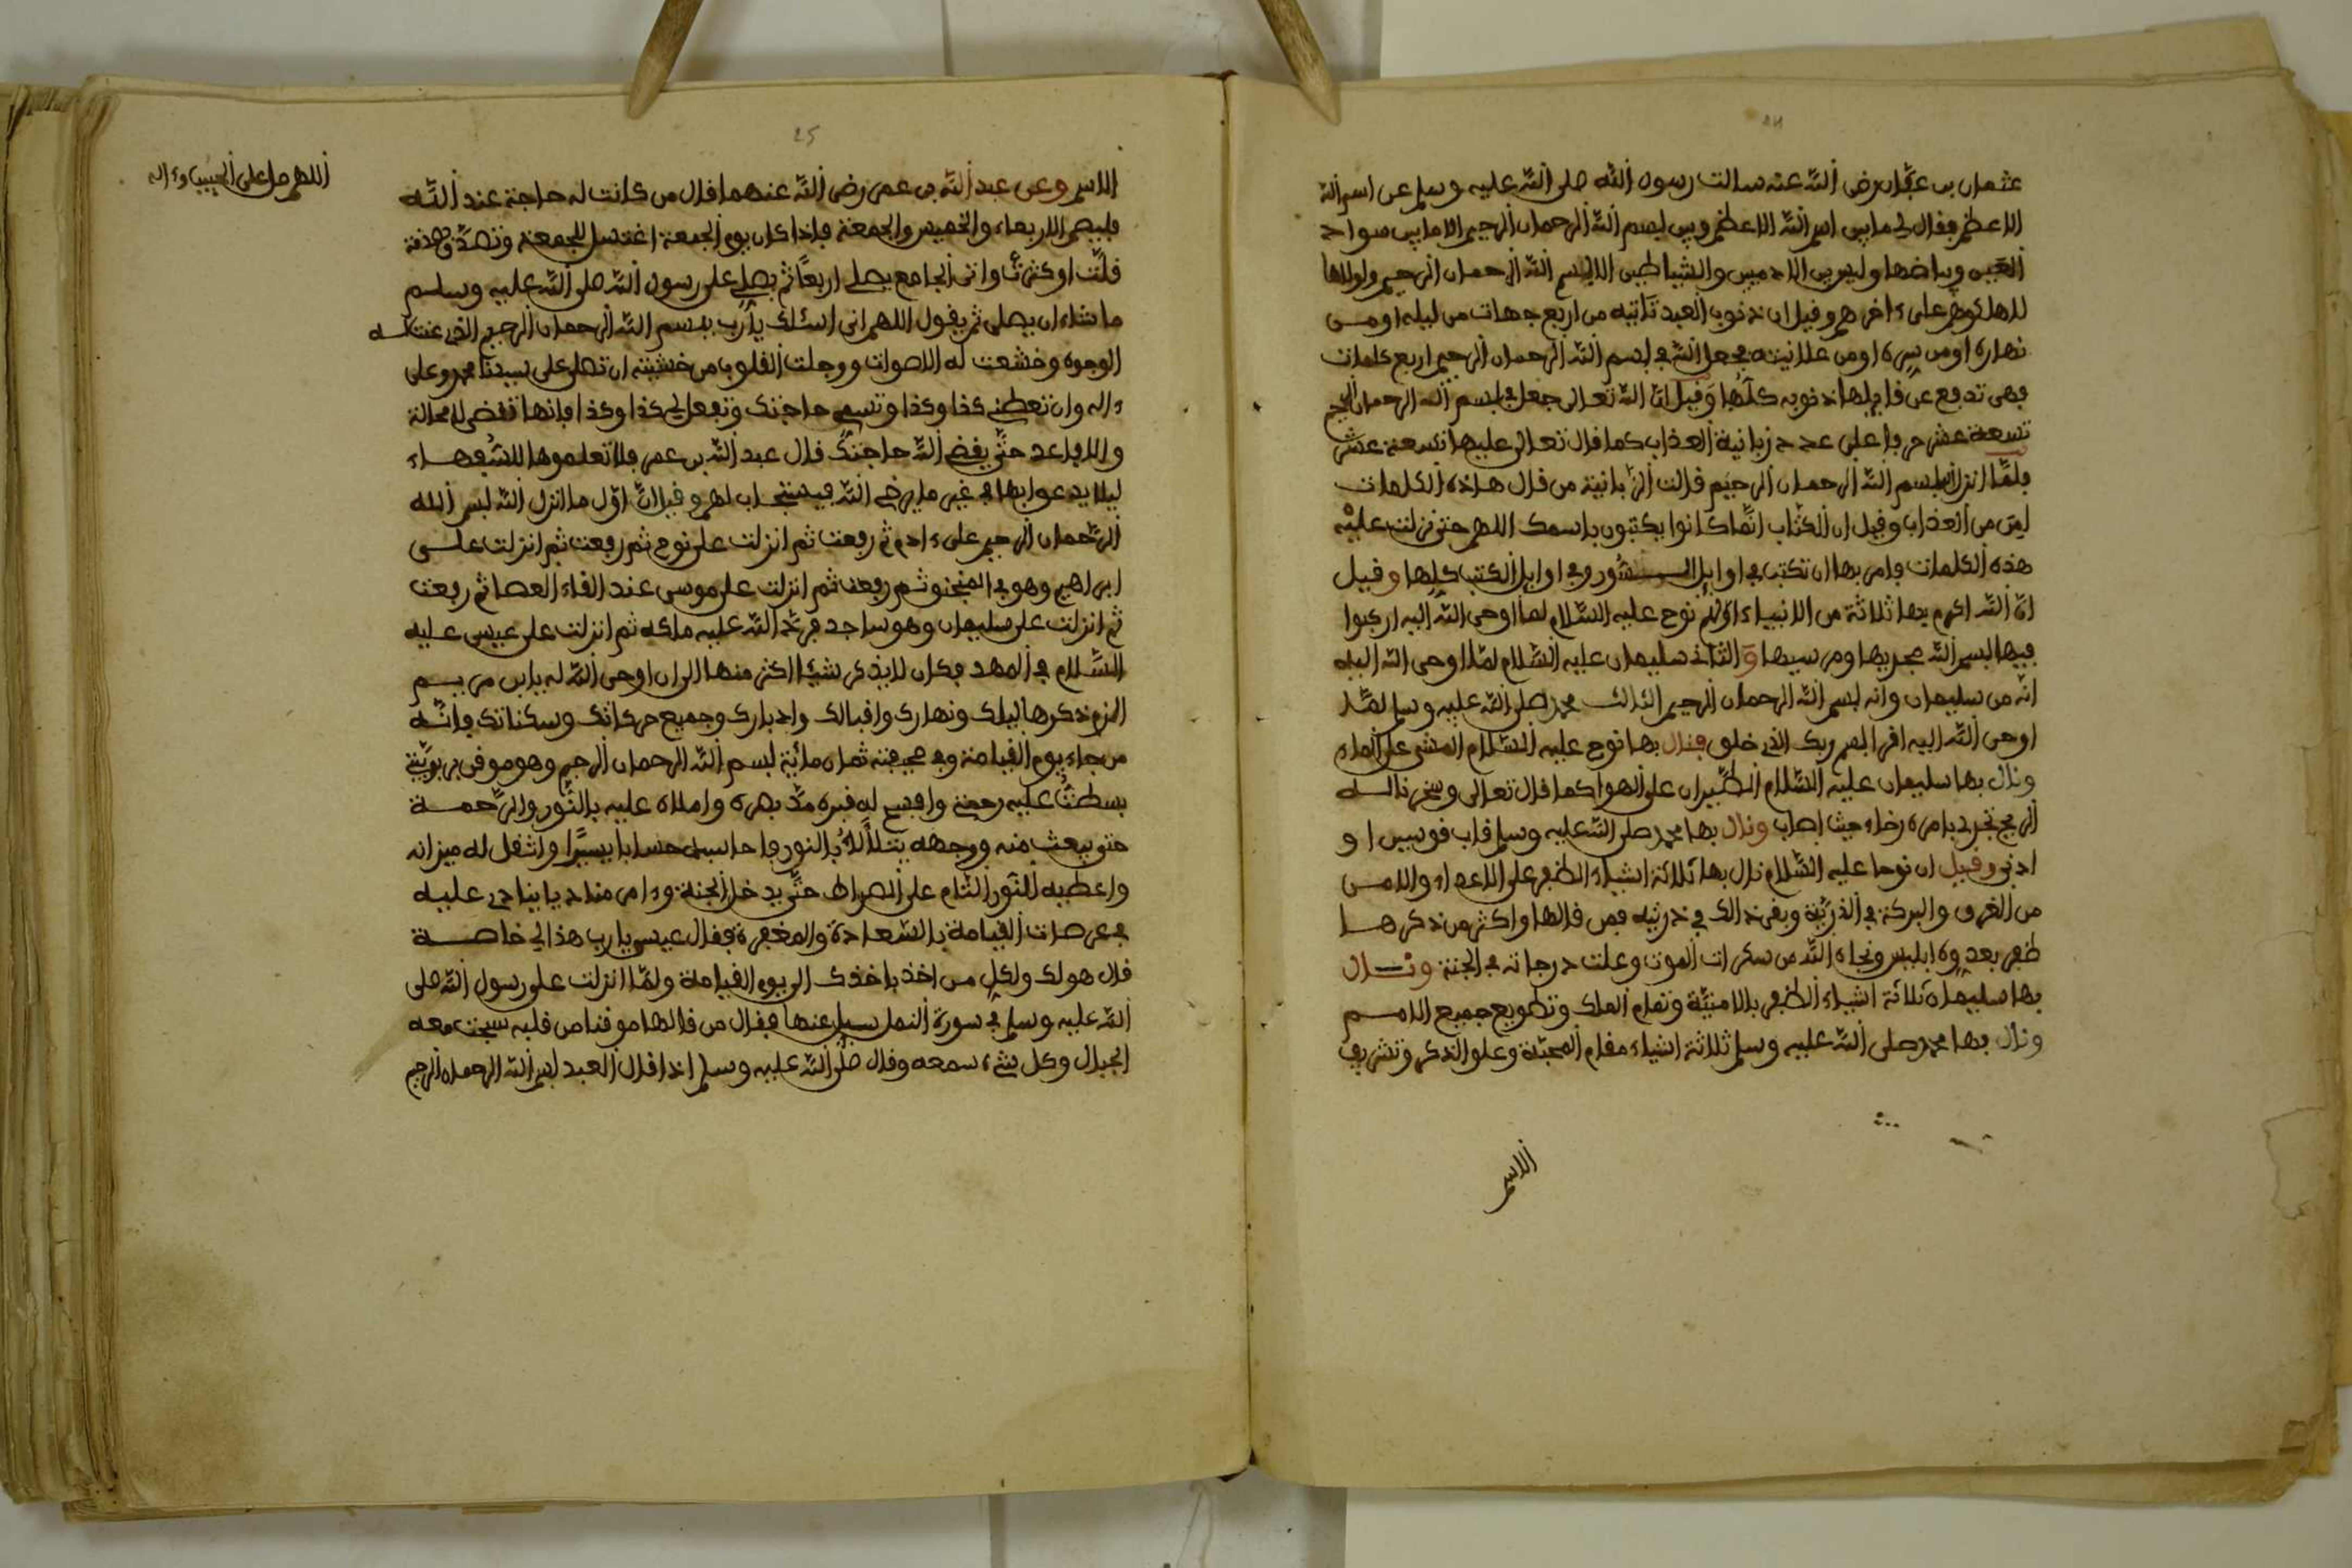 عثمان بن عفان رضى الله عنه سالت رسول الله صلى الله عليه وسلم عن اسم الله
الاعظم فقال لي ما بين اسم الله الاعظم وبين بسم الله الرحمان الرحيم الا ما بين سواد
العين وبياضها وليس بين الادميين والشياطين الا بسم الله الرحمان الرحيم ولولاها
لهلكوهم على ءاخرهم وقيل ان ذنوب العبد تاتيه من اربع جهات من ليله او من
نهاره او من سره او من علانيته فجعل الله في بسم الله الرحمان الرحيم اربع كلمات
فهى تدفع عن قايلها ذنوبه كلها وقيل ان الله تعالى جعل في بسم الله الرحمان الرحيم
تسعة عشر حرفا على عدد زبانية العذاب كما قال تعالى عليها تسعة عشر
فلما انزل الله بسم الله الرحمان الرحيم قالت الزبانية من قال هاذه الكلمات
امن من العذاب وقيل ان الكتاب انما كانوا يكتبون باسمك اللهم حتى نزلت عليه
هذه الكلمات فامر بها ان تكتب في اوايل السور وفي اوايل الكتب كلها وقيل
ان الله اكرم بها ثلاثة من الانبياء اولهم نوح عليه السلام لما اوحى الله اليه اركبوا
فيها بسم الله مجريها ومرسيها والثاني سليمان عليه السلام لما اوحى الله اليه
انه من سليمان وانه بسم الله الرحمان الرحيم الثالث محمد صلى الله عليه وسلم لما
اوحى الله اليه اقرا باسم ربك الذي خلق فنال بها نوح عليه السلام المشى على الماء
ونال بها سليمان عليه السلام الطيران على الهوا كما قال تعالى وسخرنا له
الريح تجرى بامره رخاء حيث اصاب ونال بها محمد صلى الله عليه وسلم قاب قوسين او
ادنى وقيل ان نوحا عليه السلام نال بها ثلاثة اشياء الظفر على الاعداء والامن
من الغرق والبركة في الذرية وبقى ذالك في ذريته فمن قالها واكثر من ذكرها
ظفر بعدوه ابليس ونجاه الله من سكرات الموت وعلت درجاته في الجنة ونال
بها سليمان ثلاثة اشياء الظفر بالامنية وتمام الملك وتطويع جميع الامم
ونال بها محمد صلى الله عليه وسلم ثلاثة اشياء مقام المحبة وعلو الذكر وتشريف
الاسم
25
اللهم صل على الحبيب وءاله
الاسم وعن عبد الله بن عمر رضى الله عنهما قال من كانت له حاجة عند الله
فليصم الاربعاء والخميس والجمعة فاذا كان يوم الجمعة اغتسل للجمعة وتصدق بصدقة
قلت او كثرت واتى الجامع يصلى اربعا ثم يصلى على رسول الله صلى الله عليه وسلم
ما شاء ان يصلى ثم يقول اللهم انى اسئلك يا رب بسم الله الرحمان الرحيم الذي عنت له
الوجوه وخشعت له الاصوات ووجلت القلوب من خشيته ان تصل على سيدنا محمد وعلى
ءاله وان تعطني كذا وكذا وتسمى حاجتك وتفعل لي كذا وكذا فانها تقضى لا محالة
والا فاعد حتى يقضى الله حاجتك قال عبد الله بن عمر فلا تعلموها للسفهاء
ليلا يدعوا بها في غير ما يرضي الله فيستجاب لهم وقيل ان اول ما انزل الله بسم الله
الرحمان الرحيم على ءادم ثم رفعت ثم انزلت على نوح ثم رفعت ثم انزلت على
ابراهيم وهو في المنجنو ثم رفعت ثم انزلت على موسى عند القاء العصا ثم رفعت
ثم انزلت على سليمان وهو ساجد فرد الله عليه ملكه ثم انزلت على عيسى عليه
السلام في المهد فكان لا يذكر شيئا اكثر منها الى ان اوحى الله له يا ابن مريم
الزم ذكرها ليلك ونهارك واقبالك وادبارك وجميع حركاتك وسكناتك فانه
من جاء يوم القيامة وفي صحيفته ثمان مائة بسم الله الرحمان الرحيم وهو موقن بربوبيتى
بسطت عليه رحمتى وافسح له قبره مد بصره واملاه عليه بالنور والرحمة
حتى يبعث منه ووجهه يتلألأ بالنور فاحاسبه حسابا يسيرا واثقل له ميزانه
واعطيه النور التام على الصراط حتى يدخل الجنة وءامر مناديا ينادي عليه
في عرصات القيامة بالسعادة والمغفرة فقال عيسى يا رب هذا لي خاصة
قال هو لك ولكل من اخذ باخذك الى يوم القيامة ولما انزلت على رسول الله صلى
الله عليه وسلم في سورة النمل سيل عنها فقال من قالها موقنا من قلبه سبحت معه
الجبال وكل شيء سمعه وقال صلى الله عليه وسلم اذا قال العبد بسم الله الرحمان الرحيم